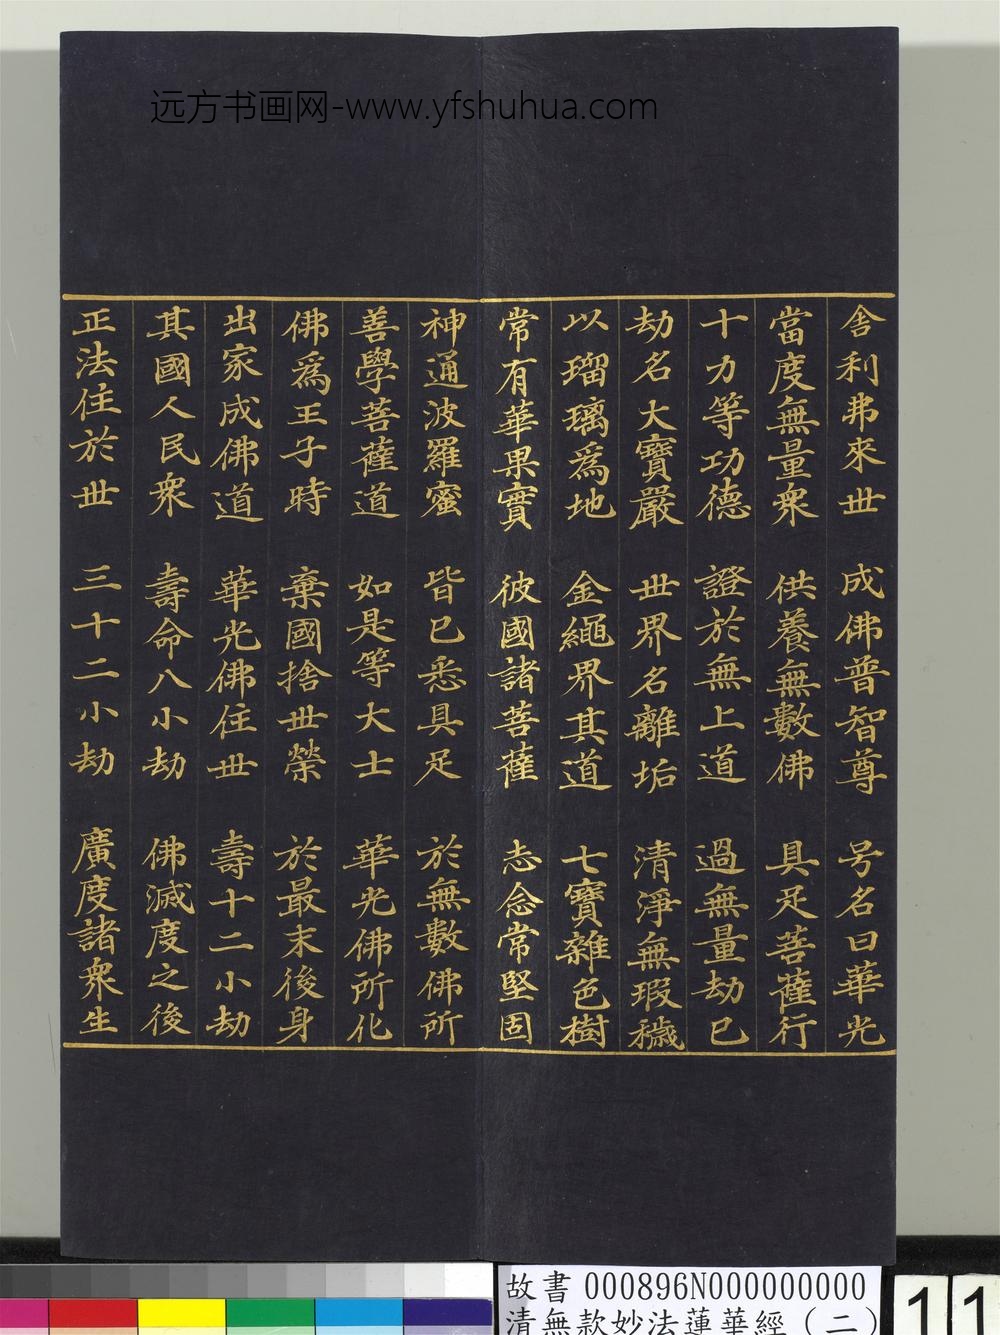 远方书画网-www.yfshuhua.com
舎利弗來世 成佛普智尊 号名曰華光
當度無量衆 供養無數佛 具足菩薩行
十力等功德 證於無上道 過無量劫已
劫名大寶嚴 世界名離垢 清淨無瑕穢
以瑠璃爲地 金繩界其道 七寶雜色樹
常有華果實 彼國諸菩薩 志念常堅固
神通波羅蜜 皆已悉具足 於無數佛所
善學菩薩道 如是等大士 華光佛所化
佛爲王子時 棄國捨世榮 於最末後身
出家成佛道 華光佛住世 壽十二小劫
其國人民衆 壽命八小劫 佛滅度之後
正法住於世 三十二小劫 廣度諸衆生
故書 000896N000000000
清無款妙法蓮華經（二）
11